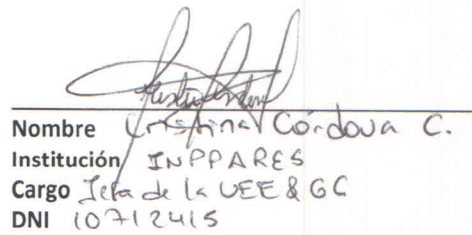 Nombre Cristina Córdova C.
Institución INPPARES
Cargo Jefa de la UEE & GC
DNI 10712415